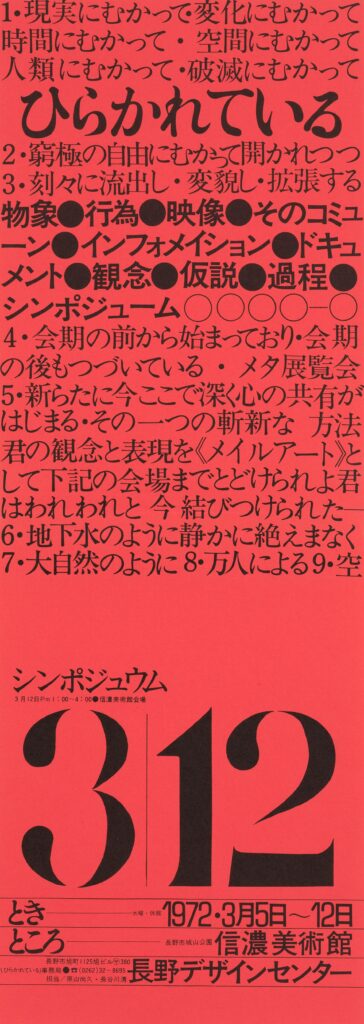 1・現実にむかって・変化にむかって
時間にむかって・空間にむかって
人類にむかって・破滅にむかって
ひらかれている
2・窮極の自由にむかって開かれつつ
3・刻々に流出し・変貌し・拡張する
物象●行為●映像●そのコミュ
ーン●インフォメイション●ドキュ
メント●観念●仮説●過程●
シンポジューム○○○○−○
4・会期の前から始まっており・会期
の後もつづいている・メタ展覧会
5・新らたに今ここで深く心の共有が
はじまる・その一つの斬新な 方法
君の観念と表現を《メイルアート》と
して下記の会場までとどけられよ君
はわれわれと 今 結びつけられた―
6・地下水のように静かに絶えまなく
7・大自然のように 8・万人による9・空
シンポジュウム
3月12日Pm1:00−4:00●信濃美術館会場
3|12
とき 火曜・休館 1972・3月5日〜12日
ところ 長野市城山公園 信濃美術館
長野市旭町1125旭ビル〒380
《ひらかれている》事務局●☎(0262)32−8695 長野デザインセンター
担当/原山尚久・長谷川清